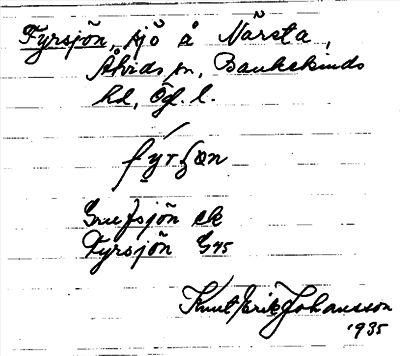 Fyrsjön, sjö å Närsta,
Åkrds sn, Bankekinds
hd, Ög. l.
Grufsjön ek
Fyrsjön G45
Knut Erik Johansson
1935